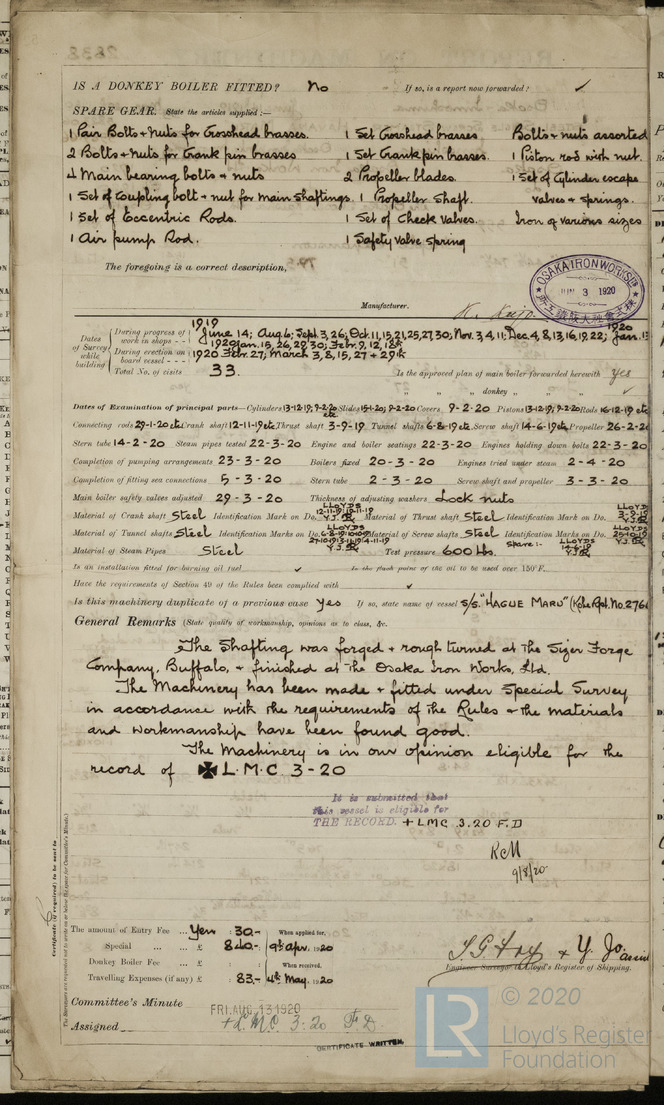 IS A DONKEY BOILER FITTED? No If so, is a report now forwarded? ✓
SPARE GEAR. State the articles supplied:—
1 Pair Bolts + Nuts for Crosshead brasses. 1 Set Crosshead brasses Bolts + nuts assorted
2 Bolts + Nuts for Crank pin brasses 1 Set Crank pin brasses. 1 Piston rod with nut.
4 Main bearing bolts + nuts 2 Propeller blades. 1 Set of Cylinder escape
1 Set of Coupling bolt + nut for Main Shaftings. 1 Propeller Shaft. valves + springs.
1 Set of Eccentric Rods. 1 Set of Check Valves. Iron of various sizes
1 Air pump Rod. 1 Safety valve spring
The foregoing is a correct description,
OSAKA IRON WORKS LTD
JUN 3 1920
株式會社大阪鐵工所
Manufacturer.
Dates of Survey while building
During progress of work in shops - - 1919 June 14; Aug 6; Sept. 3, 26; Oct. 11, 15, 21, 25, 27, 30; Nov. 3, 4, 11; Dec. 4, 8, 13, 16, 19, 22; 1920 Jan. 13
1920 Jan. 15, 26, 29, 30; Febr. 9, 12, 18th
During erection on board vessel - - - 1920 Febr. 27; March 3, 8, 15, 27 + 29th
Total No. of visits 33. Is the approved plan of main boiler forwarded herewith yes
" " " donkey " " " ✓
Dates of Examination of principal parts—Cylinders 13-12-19; 9-2-20 etc Slides 15-1-20; 9-2-20 Covers 9-2-20 Pistons 13-12-19; 9-2-20 Rods 16-12-19 etc
Connecting rods 29-1-20 etc Crank shaft 12-11-19 etc Thrust shaft 3-9-19 Tunnel shafts 6-8-19 etc Screw shaft 14-6-19 etc Propeller 26-2-20
Stern tube 14-2-20 Steam pipes tested 22-3-20 Engine and boiler seatings 22-3-20 Engines holding down bolts 22-3-20
Completion of pumping arrangements 23-3-20 Boilers fixed 20-3-20 Engines tried under steam 2-4-20
Completion of fitting sea connections 5-3-20 Stern tube 2-3-20 Screw shaft and propeller 3-3-20
Main boiler safety valves adjusted 29-3-20 Thickness of adjusting washers Lock nuts
Material of Crank shaft Steel Identification Mark on Do. LLOYDS Y.J. Material of Thrust shaft Steel Identification Mark on Do. LLOYDS 3-9-19 Y.J.
Material of Tunnel shafts Steel Identification Mark on Do. LLOYDS Y.J. Material of Screw shafts Steel Identification Marks on Do. LLOYDS Y.J.
Spare:- LLOYDS 14-6-19 Y.J.
Material of Steam Pipes Steel Test pressure 600 lbs.
Is an installation fitted for burning oil fuel ✓ Is the flash point of the oil to be used over 150°F.
Have the requirements of Section 49 of the Rules been complied with ✓
Is this machinery duplicate of a previous case Yes If so, state name of vessel S/S. "HAGUE MARU" (Kobe Rpt. No. 276
General Remarks (State quality of workmanship, opinions as to class, &c.
The Shafting was forged + rough turned at The Sizer Forge
Company, Buffalo, + finished at The Osaka Iron Works, Ltd.
The Machinery has been made + fitted under Special Survey
in accordance with the requirements of the Rules + the materials
and workmanship have been found good.
The Machinery is in our opinion eligible for the
record of ✠ L.M.C. 3-20
It is submitted that
this vessel is eligible for
THE RECORD. + LMC 3.20 F.D
RCM
9/8/20
Certificate (if required) to be sent to
The Surveyors are requested not to write on or below the space for Committee's Minute.
The amount of Entry Fee ... Yen : 30.- When applied for,
Special ... ... £ 840.- 9th Apr. 1920
Donkey Boiler Fee ... £ : : When received.
Travelling Expenses (if any) £ : 83.- 4th May. 1920
+ Y. Jo
Engineer Surveyor to Lloyd's Register of Shipping.
Committee's Minute FRI. AUG. 13 1920
Assigned + L.M.C. 3.20 F.D.
CERTIFICATE WRITTEN.
LR © 2020
Lloyd's Register
Foundation